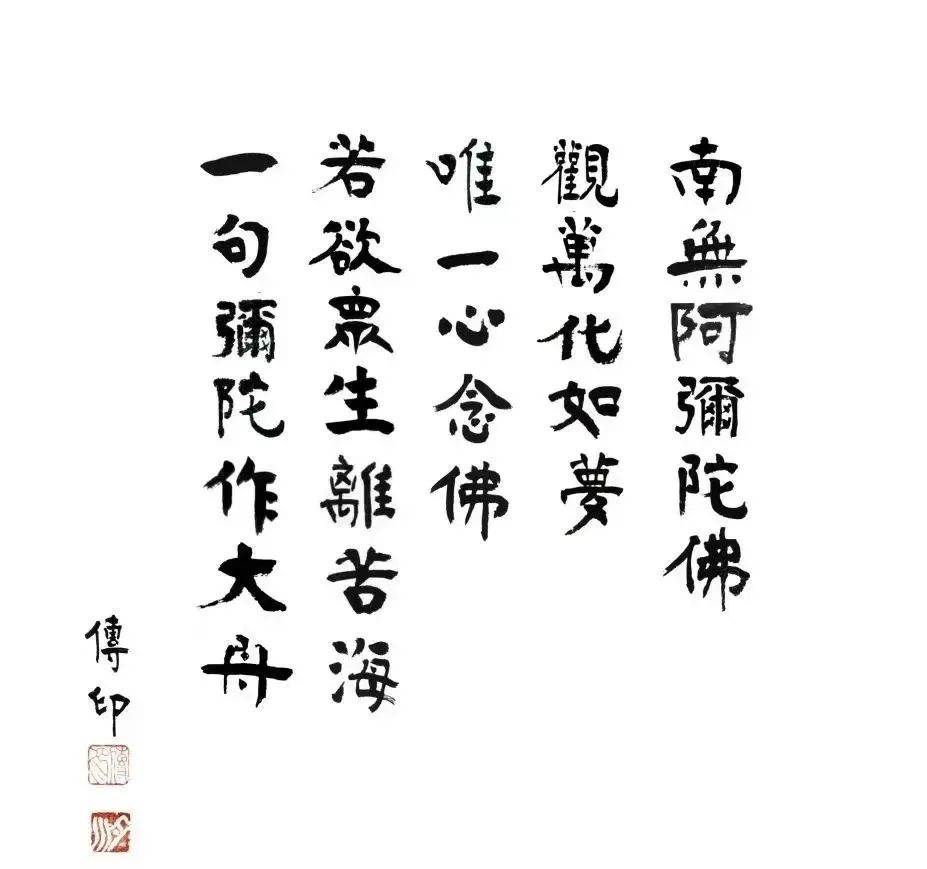 南無阿彌陀佛
觀萬化如夢
唯一心念佛
若欲眾生離苦海
一句彌陀作大舟
傳印